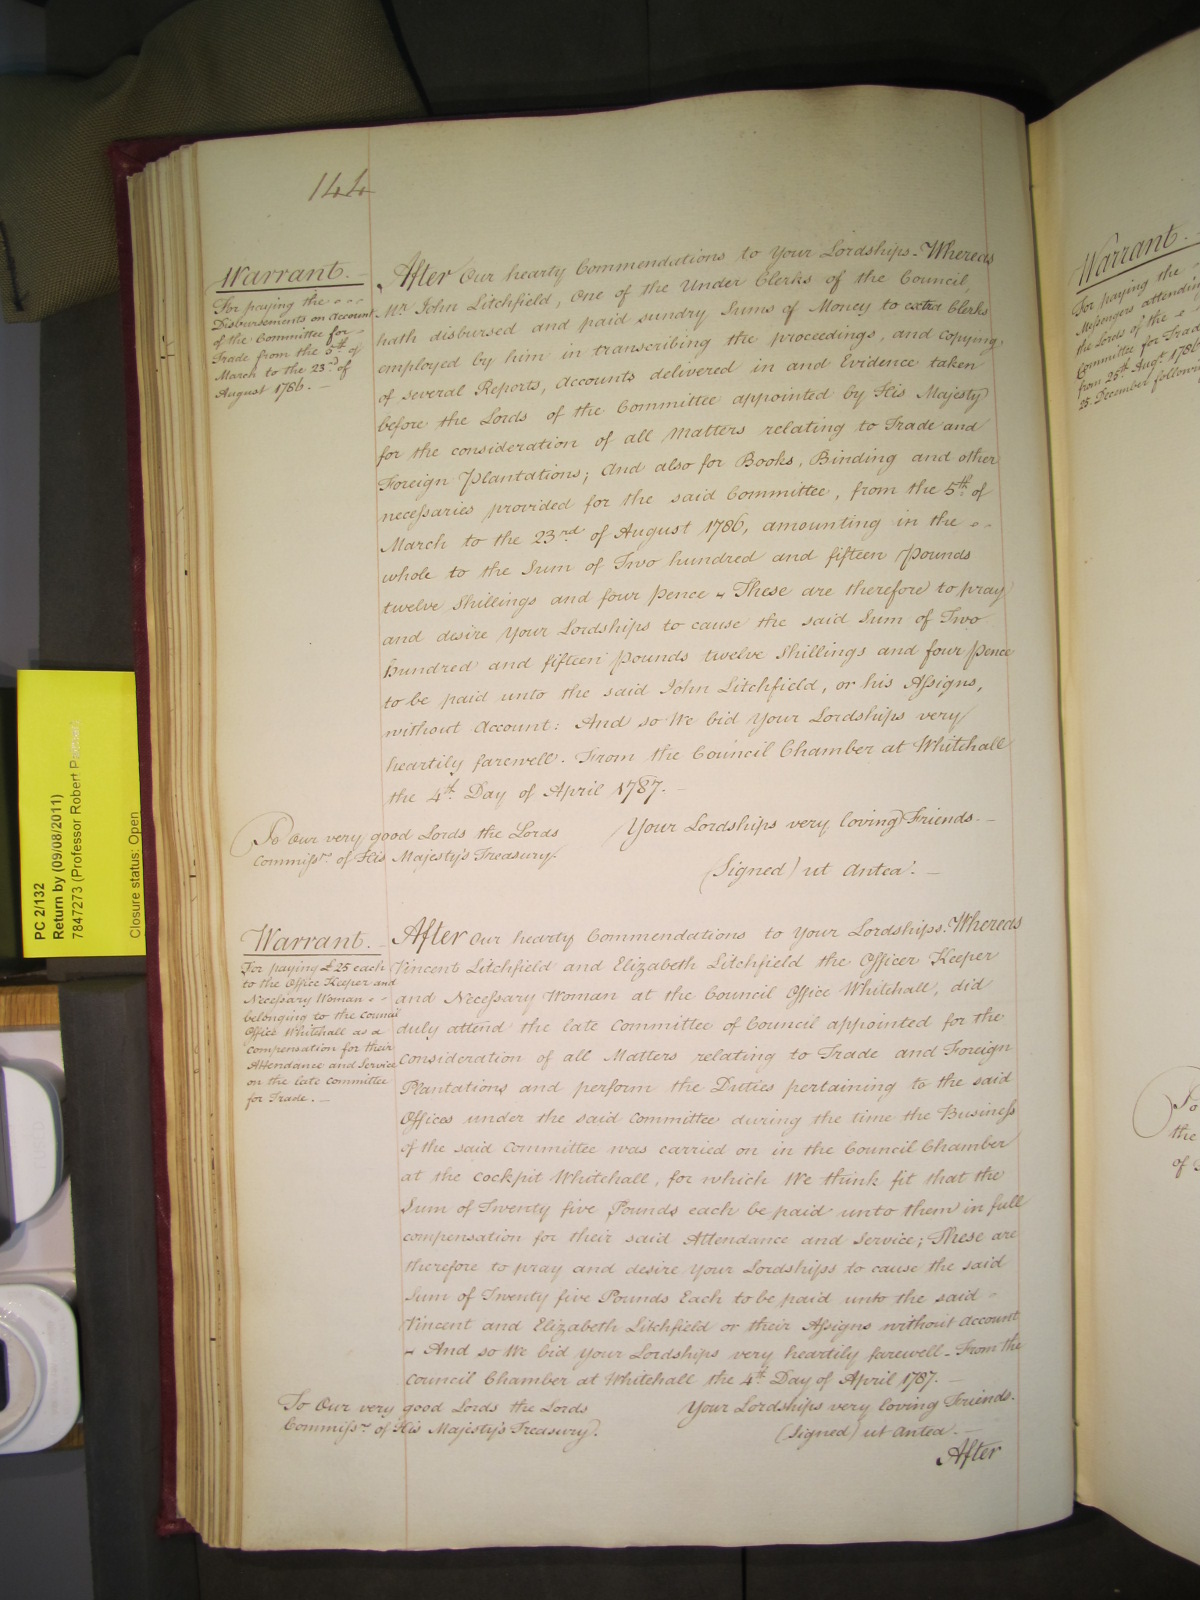 144
Warrant.
For paying the
Disbursements on Account
of the Committee for
Trade from the 5th of
March to the 23d of
August 1786.
After Our hearty Commendations to Your Lordships. Whereas
Mr John Litchfield, One of the Under Clerks of the Council,
hath disbursed and paid sundry Sums of Money to extra Clerks
employed by him in transcribing the proceedings, and copying
of several Reports, Accounts delivered in and Evidence taken
before the Lords of the Committee appointed by His Majesty
for the consideration of all Matters relating to Trade and
Foreign Plantations; And also for Books, Binding and other
necessaries provided for the said Committee, from the 5th of
March to the 23rd of August 1786, amounting in the
whole to the Sum of Two hundred and fifteen Pounds
twelve Shillings and four Pence - These are therefore to pray
and desire Your Lordships to cause the said Sum of Two
hundred and fifteen Pounds twelve Shillings and four Pence
to be paid unto the said John Litchfield, or his Assigns,
without Account: And so We bid Your Lordships very
heartily farewell. From the Council Chamber at Whitehall
the 4th Day of April 1787.
To Our very good Lords the Lords
Commissrs of His Majesty's Treasury.
Your Lordships very loving Friends.
(Signed) ut Antea.
Warrant.
For paying £25 each
to the Office Keeper and
Necessary Woman
belonging to the Council
Office Whitehall as a
compensation for their
Attendance and Service
on the late Committee
for Trade.
After Our hearty Commendations to Your Lordships. Whereas
Vincent Litchfield and Elizabeth Litchfield the Officer Keeper
and Necessary Woman at the Council Office Whitehall, did
duly attend the late Committee of Council appointed for the
consideration of all Matters relating to Trade and Foreign
Plantations and perform the Duties pertaining to the said
Offices under the said Committee during the time the Business
of the said Committee was carried on in the Council Chamber
at the Cockpit Whitehall, for which We think fit that the
Sum of Twenty five Pounds each be paid unto them in full
compensation for their said Attendance and Service; These are
therefore to pray and desire Your Lordships to cause the said
Sum of Twenty five Pounds Each to be paid unto the said
Vincent and Elizabeth Litchfield or their Assigns without Account
- And so We bid Your Lordships very heartily farewell - From the
Council Chamber at Whitehall the 4th Day of April 1787.
To Our very good Lords the Lords
Commissrs of His Majesty's Treasury.
Your Lordships very loving Friends.
(Signed) ut Antea.
After
Warrant.
For paying the
Messengers attending
the Lords of the
Committee for Trade
from 25th Augt 1786
25 December following
To
the
of
PC 2/132
Return by (09/08/2011)
7847273 (Professor Robert
Closure status: Open